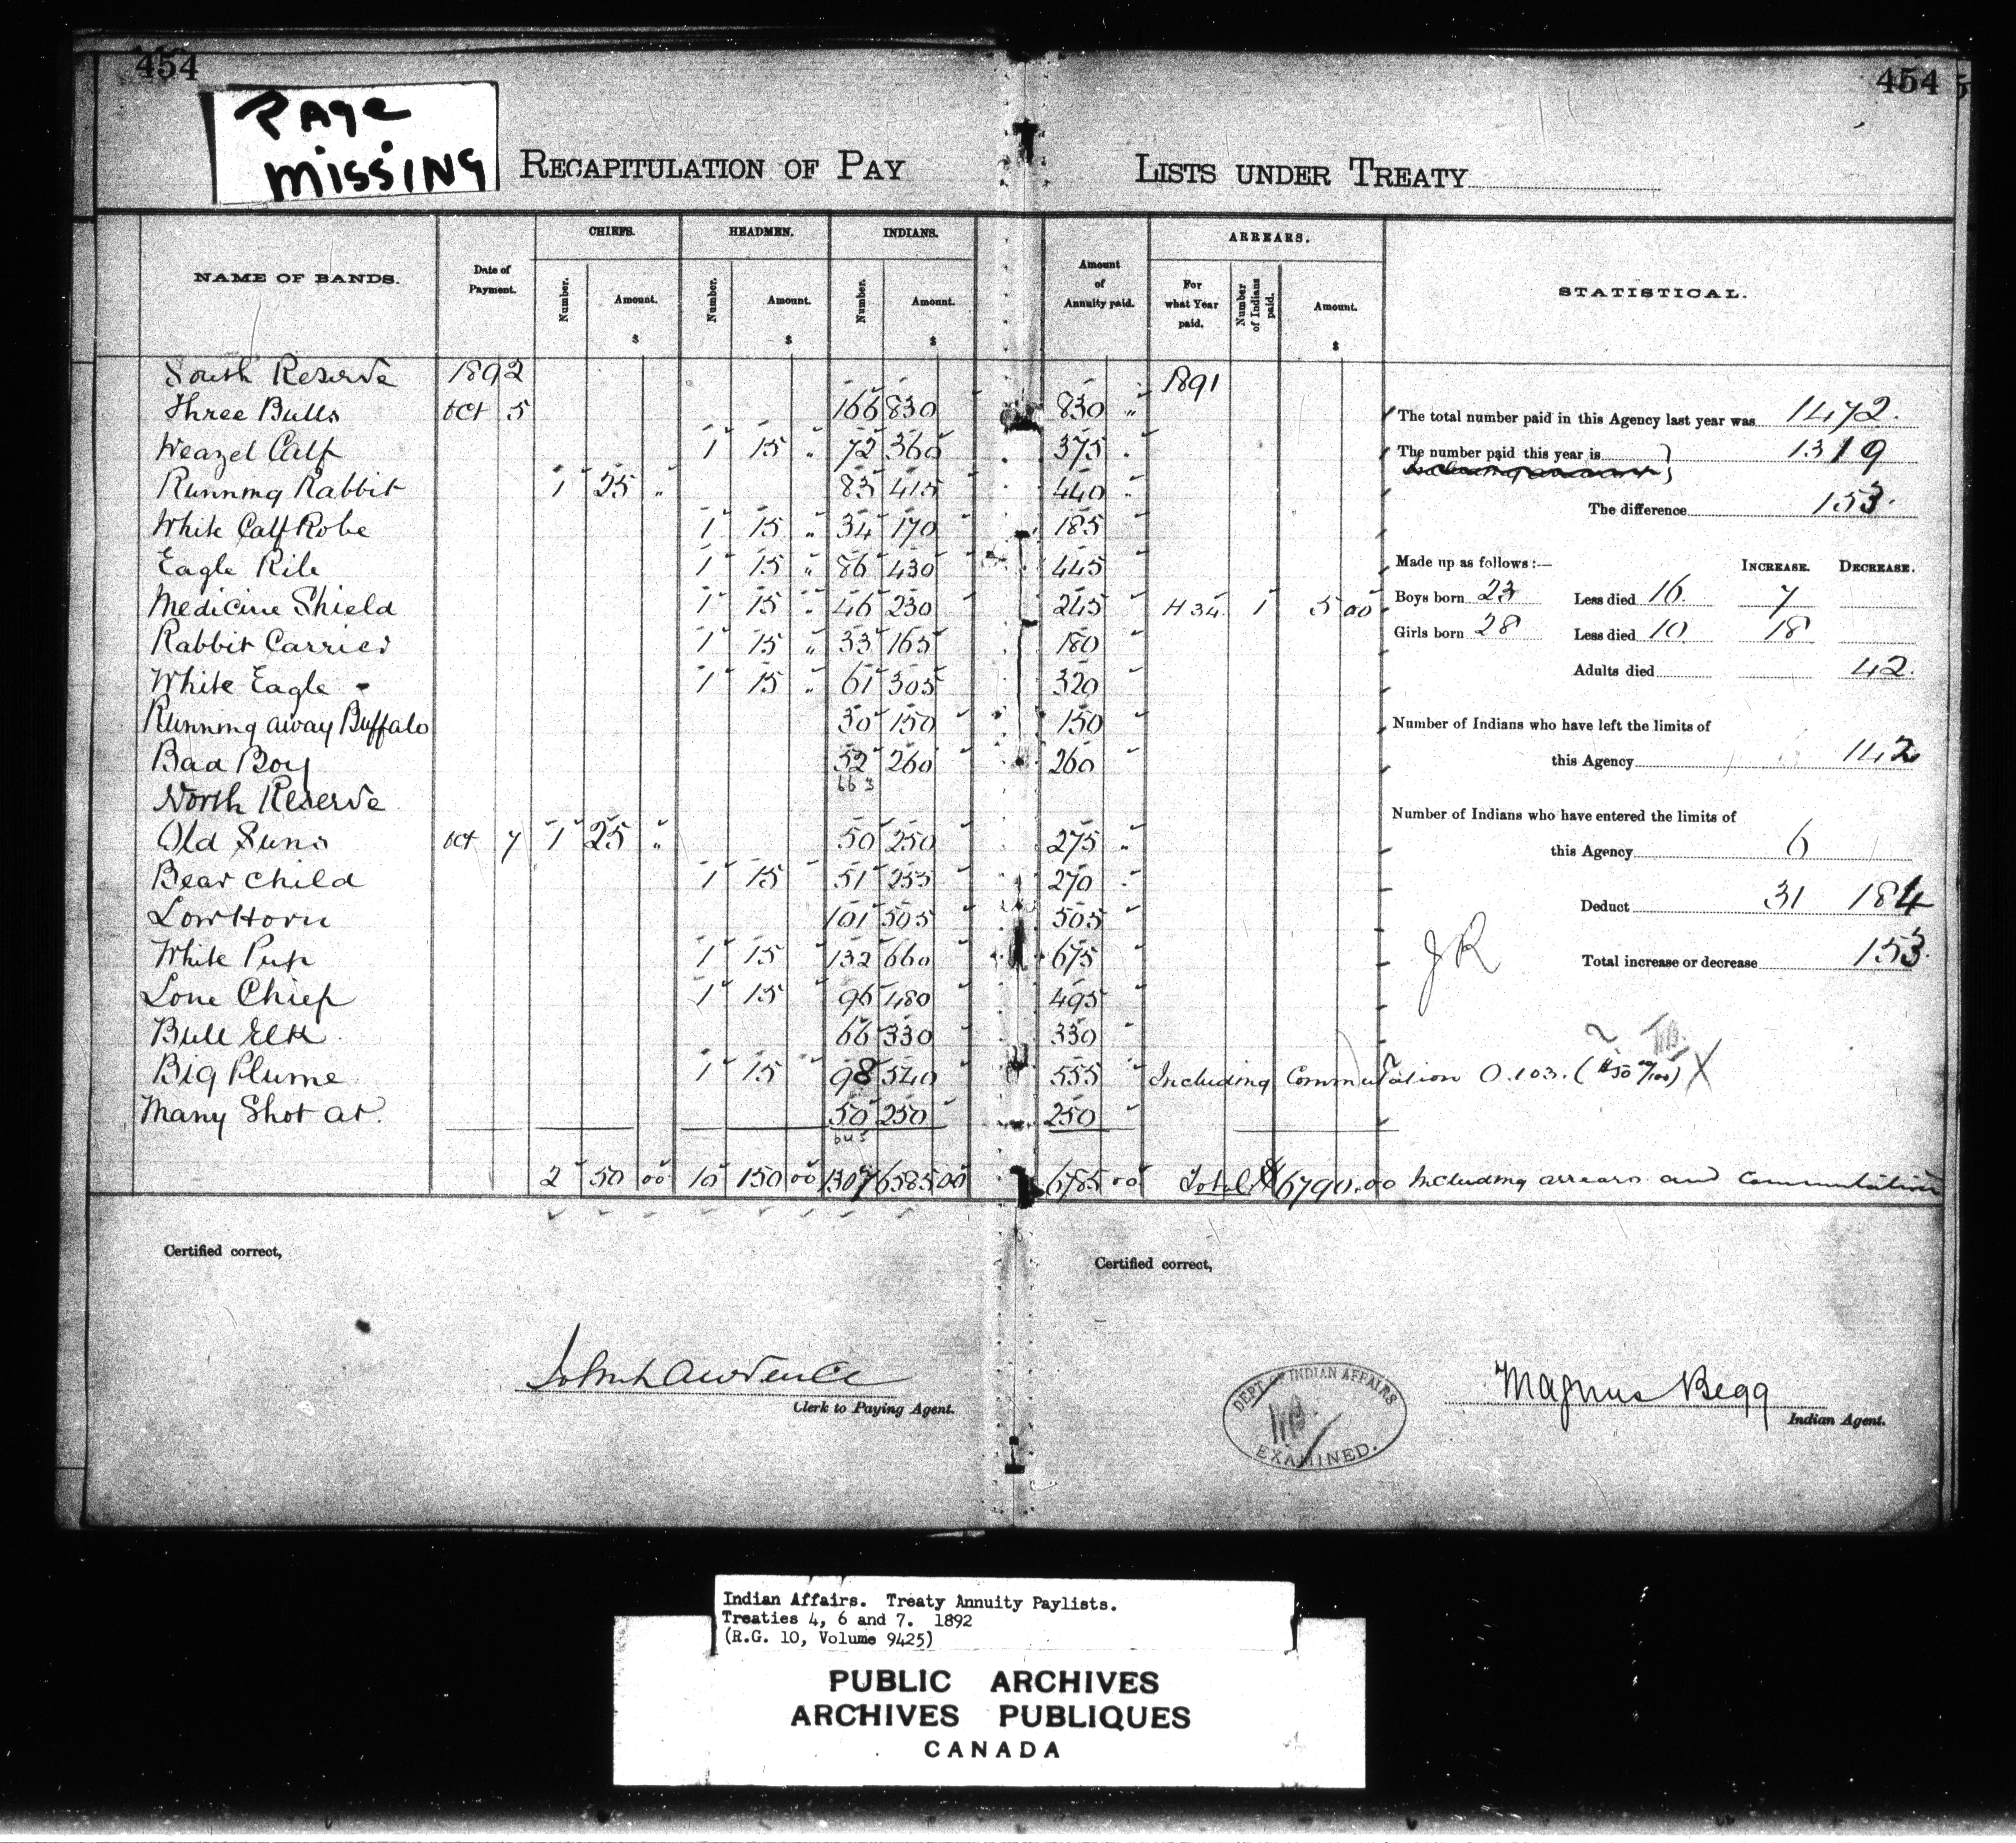 454
454
PAge
missing
RECAPITULATION OF PAY LISTS UNDER TREATY
NAME OF BANDS.
Date of Payment.
CHIEFS.
Number.
Amount.
$
HEADMEN.
Number.
Amount.
$
INDIANS.
Number.
Amount.
$
Amount of Annuity paid.
ARREARS.
For what Year paid.
Number of Indians paid.
Amount.
$
STATISTICAL.
South Reserve 1892 1891
Three Bulls Oct 5 166 830 830 "
Weazel Calf 1 15 " 72 360 375 "
Running Rabbit 1 25 " 83 415 440 "
White Calf Robe 1 15 " 34 170 185
Eagle Rib 1 15 " 86 430 445
Medicine Shield 1 15 " 46 230 245 H 34 1 5 00
Rabbit Carrier 1 15 " 33 165 180
White Eagle 1 15 " 61 305 320
Running away Buffalo 30 150 150
Bad Boy 52 260 260
663
North Reserve
Old Suns Oct 7 1 25 " 50 250 275 "
Bear child 1 15 51 255 270 "
Low Horn 101 505 505
White Pup 1 15 132 660 675
Lone Chief 1 15 96 480 495
Bull Elk 66 330 330
Big Plume 1 15 98 540 555 Including Commutation O.103. ($50 00/100) X
Many Shot at 50 250 250
645
2 50 00 10 150 00 1307 6585 00 6785 00 Total $6790.00 Including arrears and Commutation
The total number paid in this Agency last year was 1472.
The number paid this year is 1319
The difference 153.
Made up as follows:— INCREASE. DECREASE.
Boys born 23 Less died 16. 7
Girls born 28 Less died 10. 18
Adults died 42.
Number of Indians who have left the limits of
this Agency 142
Number of Indians who have entered the limits of
this Agency 6
Deduct 31 184
JR
Total increase or decrease 153.
Certified correct,
Certified correct,
John Lawrence
Clerk to Paying Agent.
DEPT OF INDIAN AFFAIRS
EXAMINED.
Magnus Begg
Indian Agent.
Indian Affairs. Treaty Annuity Paylists.
Treaties 4, 6 and 7. 1892
(R.G. 10, Volume 9425)
PUBLIC ARCHIVES
ARCHIVES PUBLIQUES
CANADA